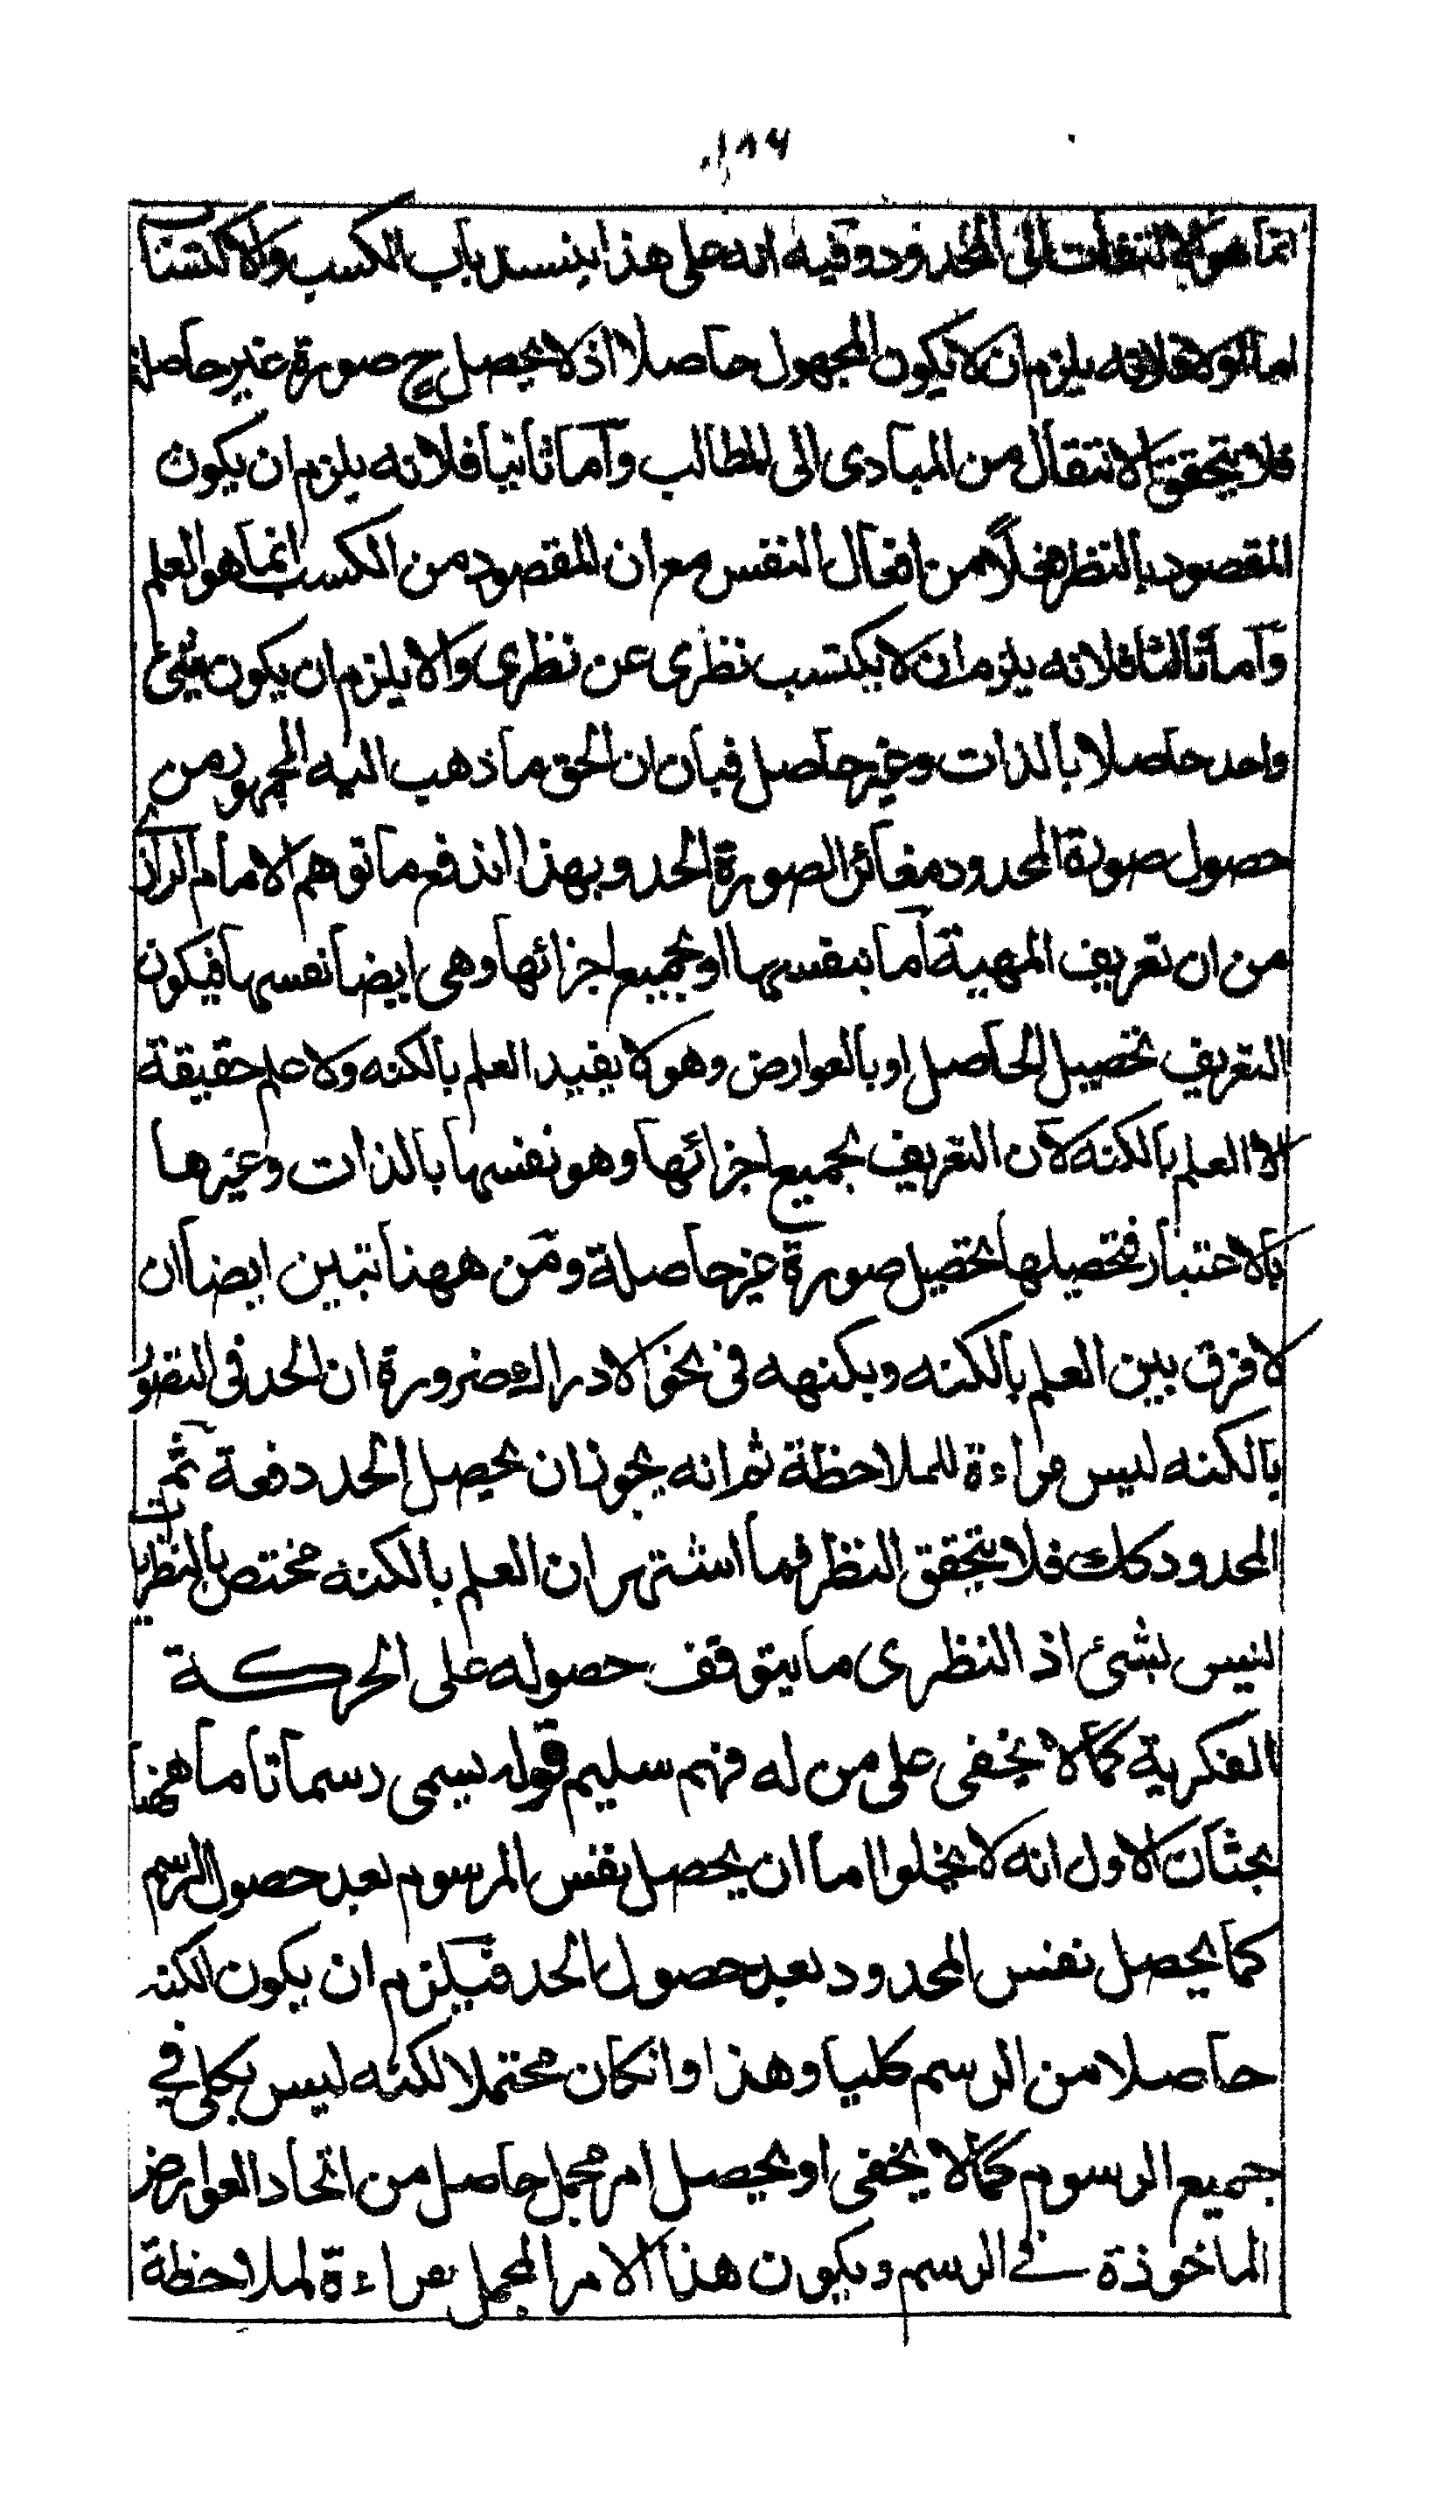 ١٨٦
انما هو الالتفات الى المحدود وفيه انه على هذا ينسد باب الكسب والاكتساب
اما اولا فلانه يلزم ان لا يكون المجهول حاصلا اذ لا يحصل ح صورة غير حاصلة
فلا يتحقق الانتقال من المبادى الى المطالب واما ثانيا فلانه يلزم ان يكون
المقصود بالنظر فعلا من افعال النفس مع ان المقصود من الكسب انما هو العلم
واما ثالثا فلانه يلزم ان لا يكتسب نظرى عن نظرى والا يلزم ان يكون شئ
واحد حاصلا بالذات وغير حاصل فبان ان الحق ما ذهب اليه الجمهور من
حصول صورة المحدود مغائر الصورة الحد وبهذا اندفع ما توهم الامام الرازى
من ان تعريف المهية اما بنفسها او بجميع اجزائها وهى ايضا نفسها فيكون
التعريف تحصيل الحاصل او بالعوارض وهو لا يفيد العلم بالكنه ولا علم حقيقة
الا العلم بالكنه لان التعريف بجميع اجزائها وهو نفسها بالذات وغيرها
بالاعتبار فتحصيلها تحصيل صورة غير حاصلة ومن ههنا تبين ايضا ان
لا فرق بين العلم بالكنه وبكنهه فى نحو الادراك ضرورة ان الحد فى التصور
بالكنه ليس مراءة للملاحظة ثم انه يجوز ان يحصل الحد دفعة ثم
المحدود كك فلا يتحقق النظر فما اشتهر ان العلم بالكنه مختص بالنظريات
ليس بشئ اذ النظرى ما يتوقف حصوله على الحركة
الفكرية كما لا يخفى على من له فهم سليم قوله يسمى رسما تاما ههنا
بحثان الاول انه لا يخلوا اما ان يحصل نفس المرسوم بعد حصول الرسم
كما يحصل نفس المحدود بعد حصول الحد فيلزم ان يكون الكنه
حاصلا من الرسم كليا وهذا وانكان محتملا لكنه ليس بكلى في
جميع الرسوم كما لا يخفى او يحصل امر مجمل حاصل من اتحاد العوارض
الماخوذة في الرسم ويكون هذا الامر المجمل مراءة لملاحظة